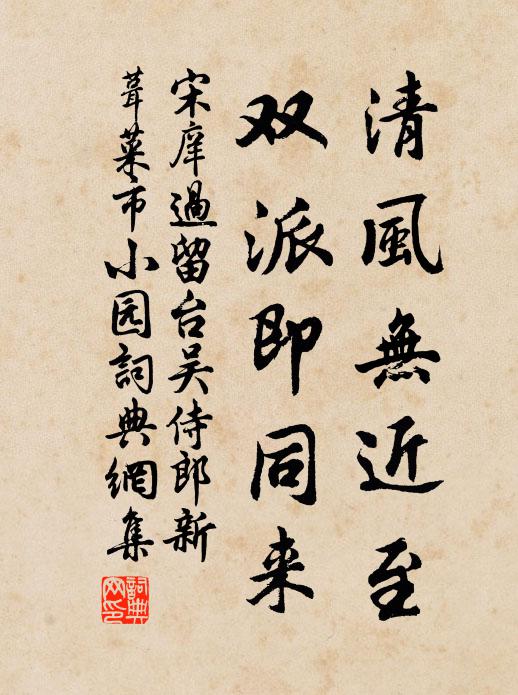 清風無近至
双派即同来
宋庠過留台吴侍郎新
葺菜市小园詞典網集
詞典网印